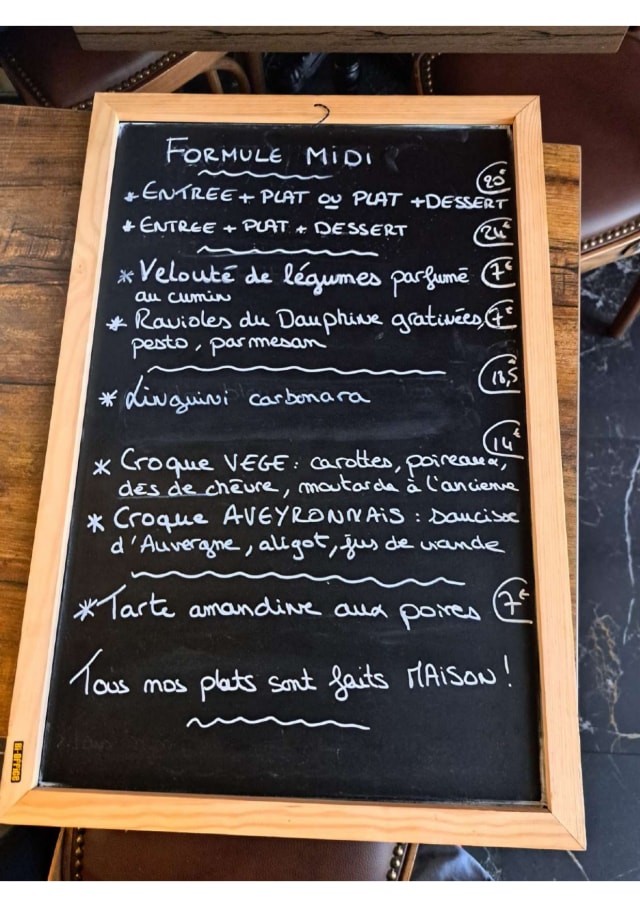 FORMULE MIDI
* ENTREE + PLAT OU PLAT + DESSERT 20€
* ENTREE + PLAT + DESSERT 24€
* Velouté de légumes parfumé 7€
au cumin
* Ravioles du Dauphine gratinées, 7€
pesto, parmesan
18,5
* Linguini carbonara
14€
* Croque VEGE : carottes, poireaux,
dés de chèvre, moutarde à l'ancienne
* Croque AVEYRONNAIS : saucisse
d'Auvergne, aligot, jus de viande
* Tarte amandine aux poires 7€
Tous nos plats sont faits MAISON !
BI-OFFICE